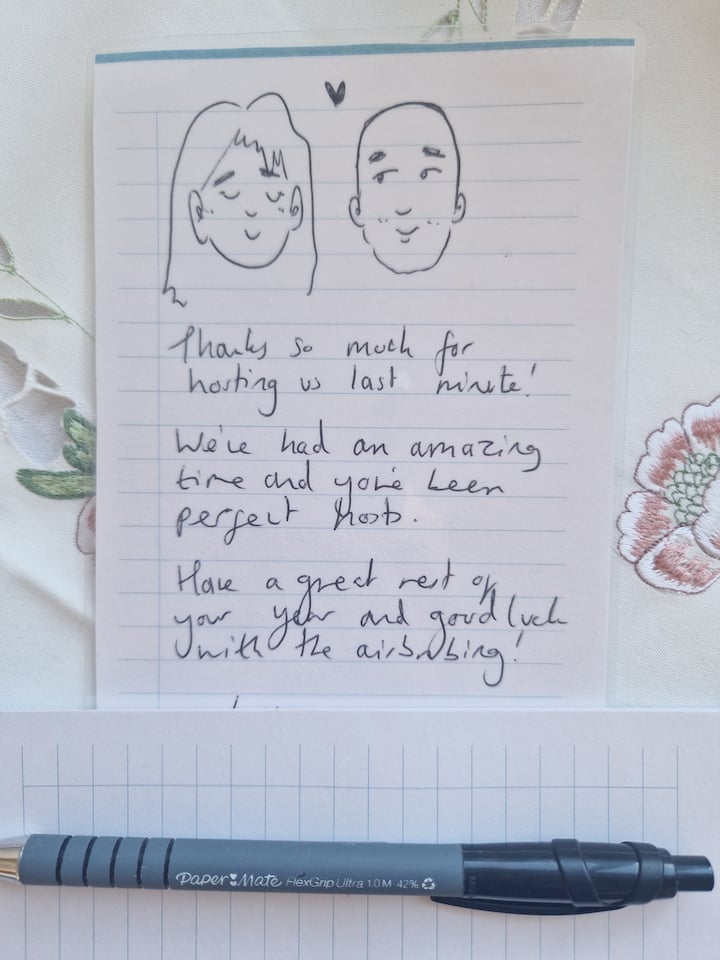 Thanks so much for
hosting us last minute!
We've had an amazing
time and you've been
perfect hosts.
Have a great rest of
your year and good luck
with the airbnbing!
Paper Mate FlexGrip Ultra 1.0 M 42%